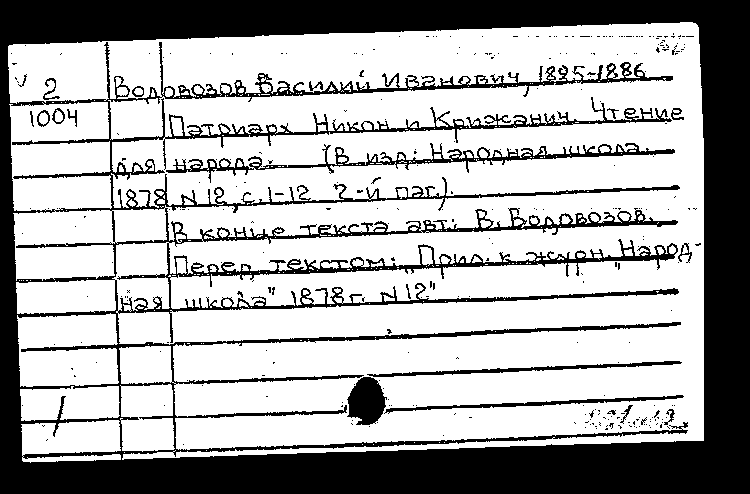 V 2 Водовозов, Василий Иванович, 1825-1886
1004 Патриарх Никон и Крижанич. Чтение
для народа. (В изд: Народная школа.
1878, N 12, с. 1-12 2-й паг.).
В конце текста авт.: В. Водовозов.
Перед текстом: „Прил. к журн. „Народ-
ная школа" 1878 г. N 12"